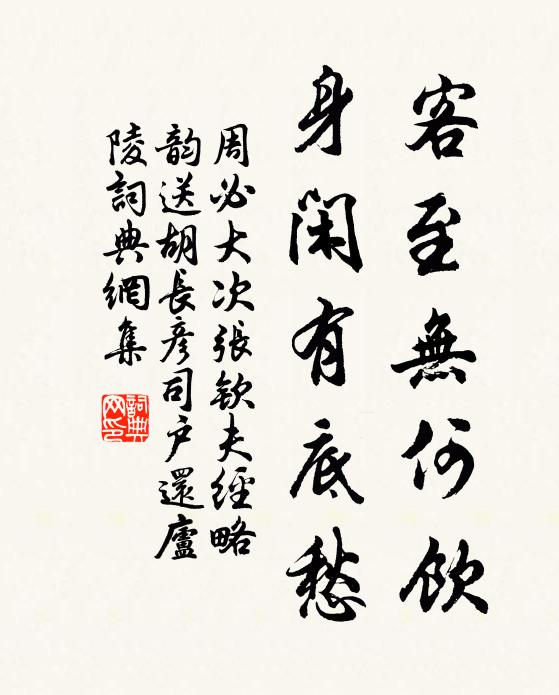 客至無何飲
身閑有底愁
周必大次張欽夫經略
韵送胡長彥司户還廬
陵詞典網集
詞典
网印